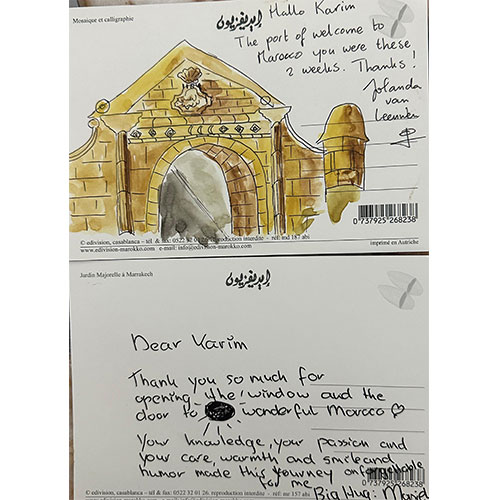 Mosaïque et calligraphie
إيديفزيون
Hallo Karim
The port of welcome to
Marocco you were these
2 weeks. Thanks!
Jolanda
van
Leeuwen
0 737925 268238
© edivision, casablanca – tél & fax: 0522 32 01 26. reproduction interdite - réf: mc 187 abi
www.edivision-marokko.com e-mail: info@edivision-marokko.com
imprimé en Autriche
Jardin Majorelle à Marrakech
إيديفزيون
Dear Karim
Thank you so much for
opening the window and the
door to wonderful Morocco ♡
Your knowledge, your passion and
your care, warmth and smile and
humor made this journey unforgettable
for me. Big Hug
0 737925 268238
© edivision, casablanca – tél & fax: 0522 32 01 26. reproduction interdite - réf: mc 157 abi